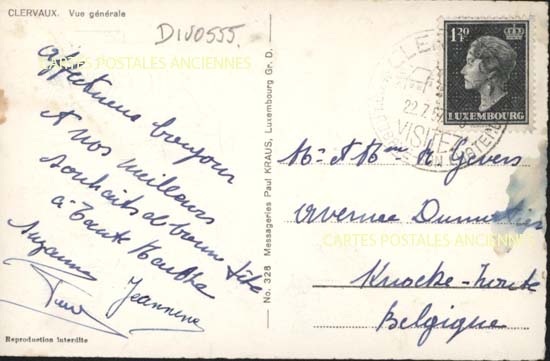 CLERVAUX. Vue générale
DIV0555.
CARTES POSTALES ANCIENNES
Affectueux bonjour
et nos meilleurs
souhaits de bonne fête
à Tante Marthe
Suzanne
Jeannine
Reproduction interdite
No. 328 Messageries Paul KRAUS, Luxembourg Gr. D.
1F50
LUXEMBOURG
22.7.5
VISITEZ
Mr & Mme M. Gevers
Avenue
CARTES POSTALES ANCIENNES
Knocke-Zoute
Belgique